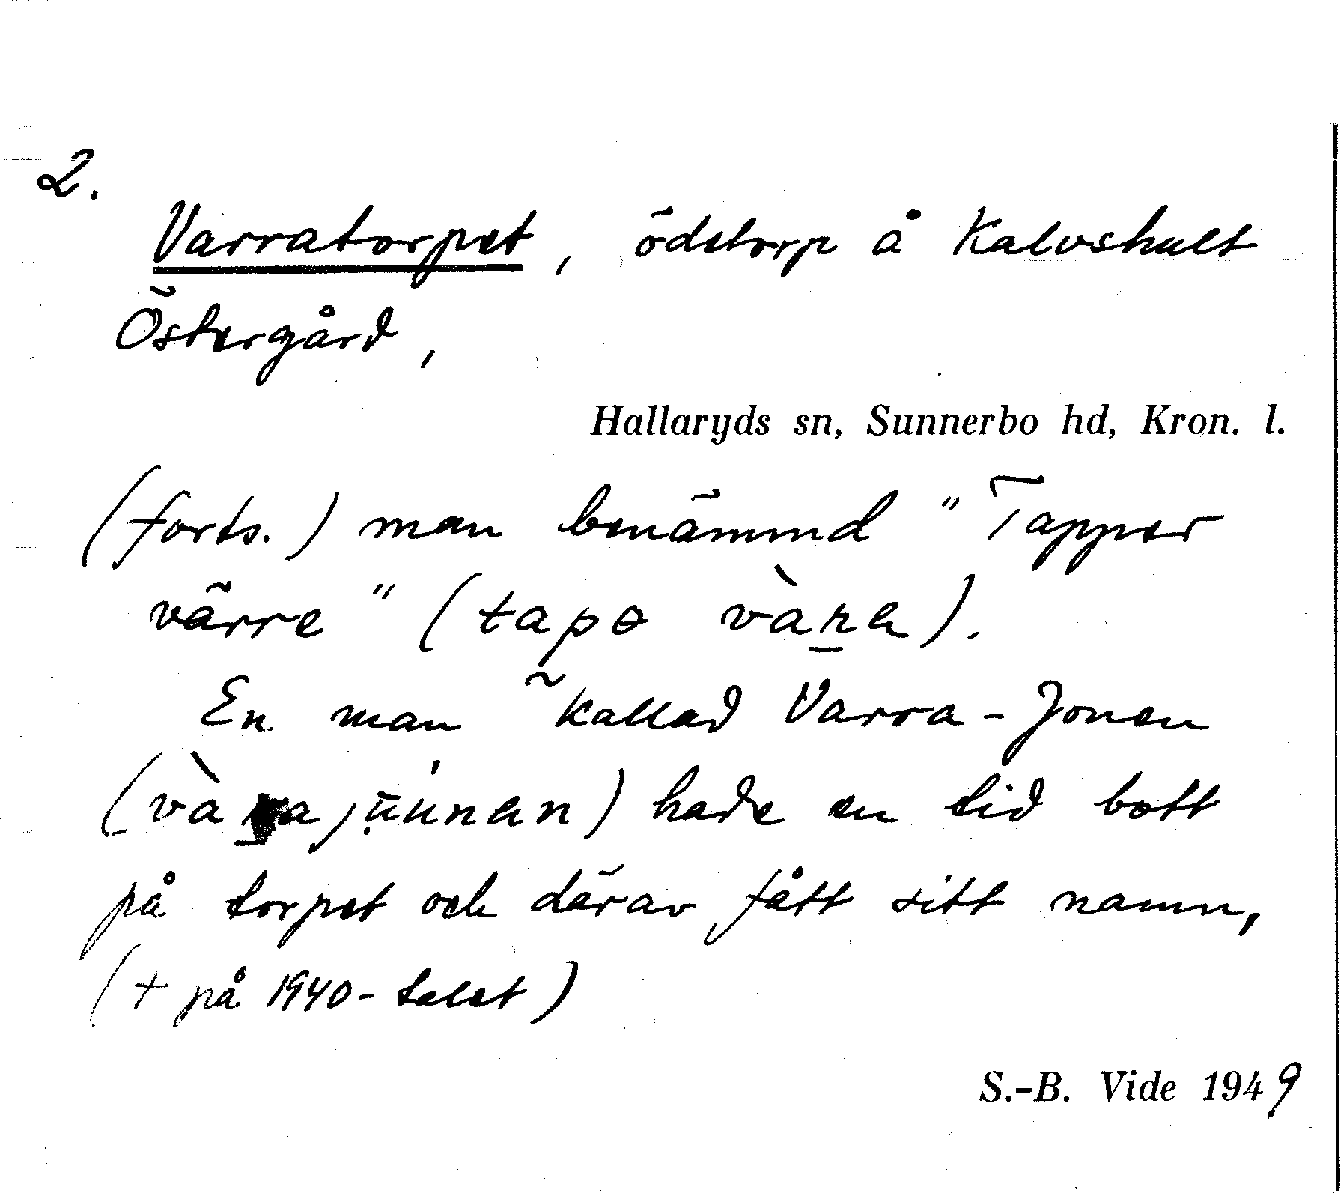 2.
Varratorpet, ödetorp å Kalvshult
Östergård,
Hallaryds sn, Sunnerbo hd, Kron. l.
(forts.) man benämnd "Tapper
värre" (tapə vàra).
En man kallad Varra-Jonen
hade en tid bott
på torpet och därav fått sitt namn,
(+ på 1940-talet)
S.-B. Vide 1949